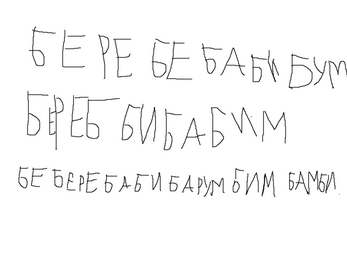 БЕРЕ БЕ БАБИ БУМ
БРЕБ БИБАБИМ
БЕ БЕРЕ БАБИ БАРУМ БИМ БАМБИ.